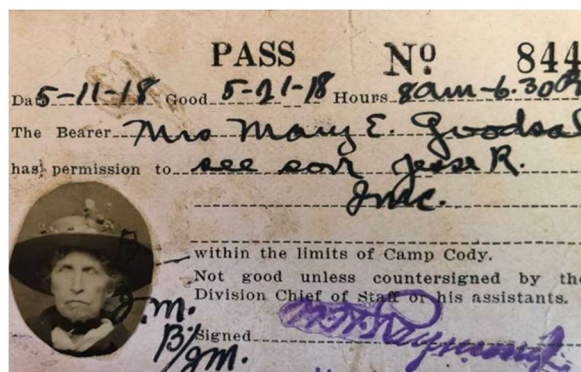 PASS No 844
Date 5-11-18 Good 5-21-18 Hours 8am-6.30
The Bearer Mrs Mary E.
has permission to see son Jesse R.
within the limits of Camp Cody.
Not good unless countersigned by the
Division Chief of Staff or his assistants.
J.M.
Signed
By JM.